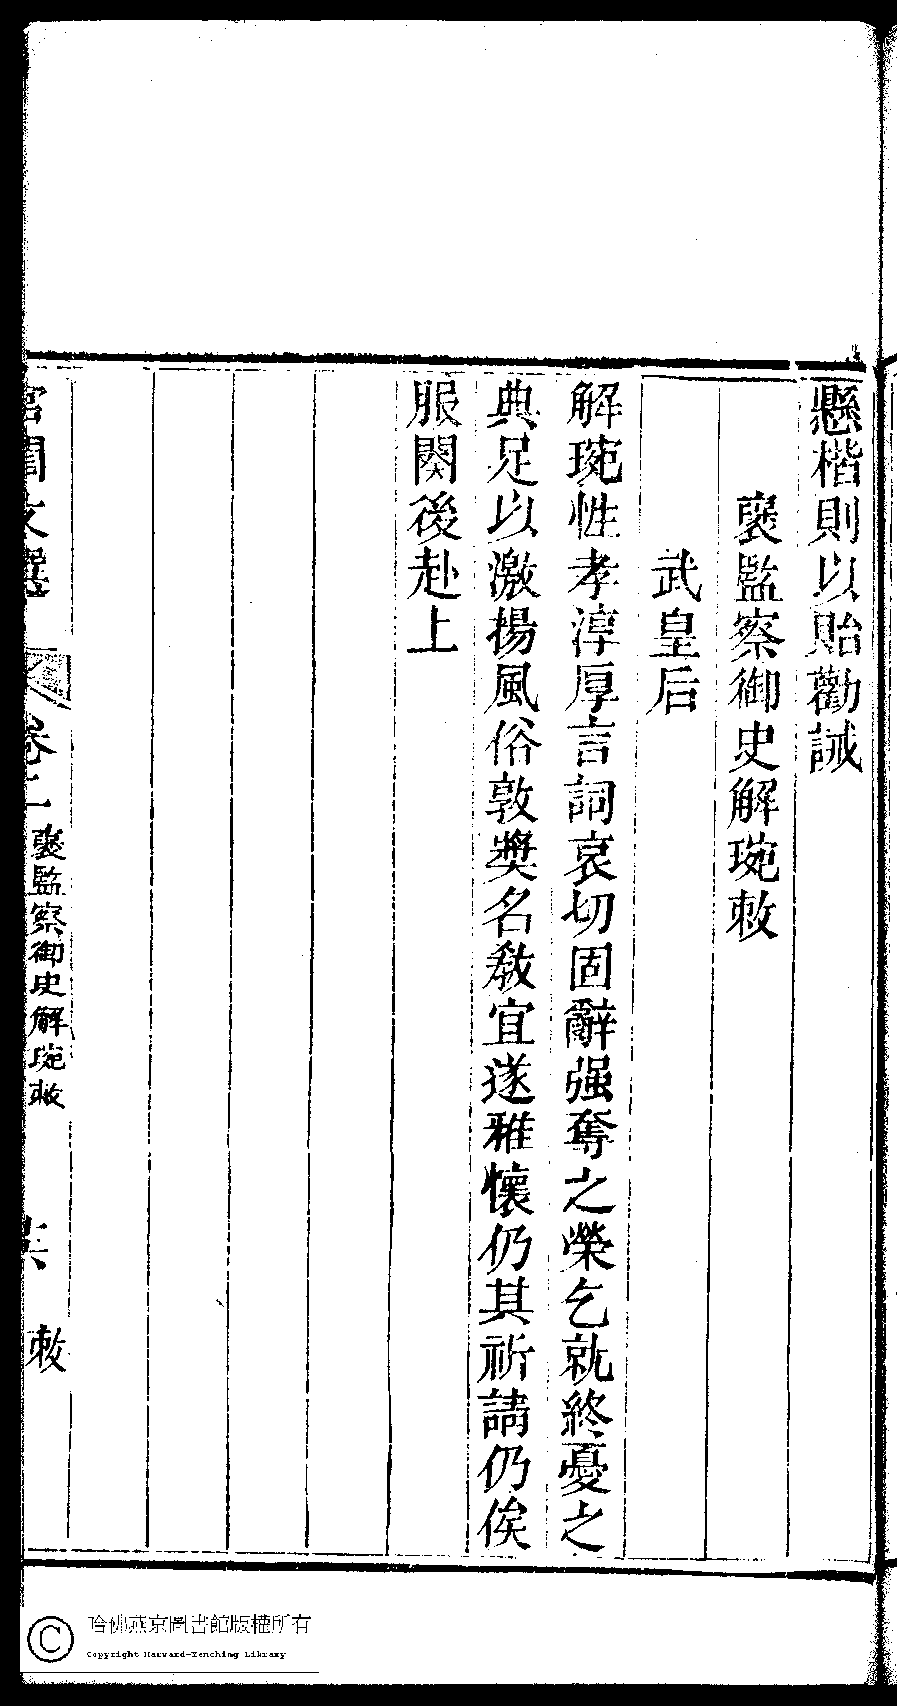 懸楷則以貽勸誡
褒監察御史解琬敕
武皇后
解琬性孝淳厚言詞哀切固辭强奪之榮乞就終憂之
典足以激揚風俗敦奬名敎宜遂雅懷仍其祈請仍俟
服闋後赴上
宮閨文選
卷二
褒監察御史解琬敕
敕
哈佛燕京圖書館版權所有
Copyright Harvard-Yenching Library